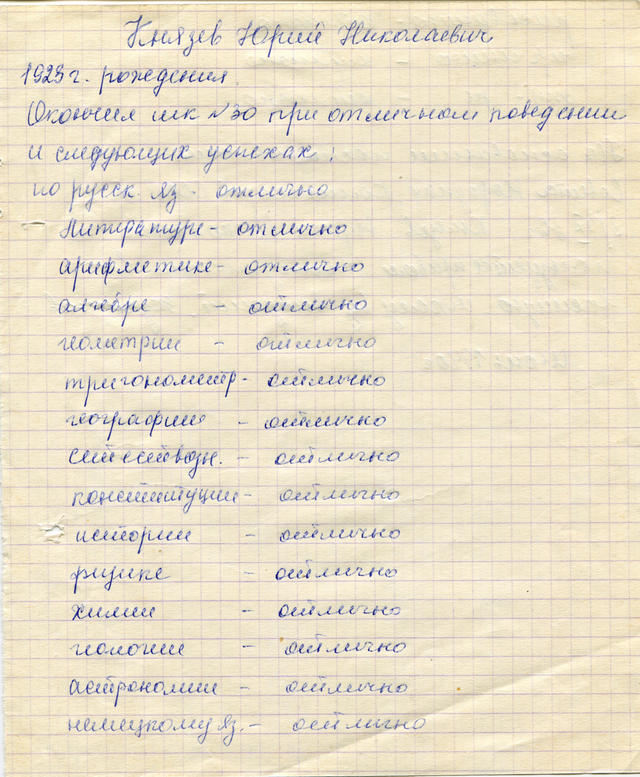 Князев Юрий Николаевич
1923 г. рождения.
Окончил шк №30 при отличном поведении
и следующих успехах:
по русск. яз - отлично
литературе - отлично
арифметике - отлично
алгебре - отлично
геометрии - отлично
тригонометр - отлично
географии - отлично
естествозн. - отлично
конституции - отлично
истории - отлично
физике - отлично
химии - отлично
геологии - отлично
астрономии - отлично
немецкому яз. - отлично